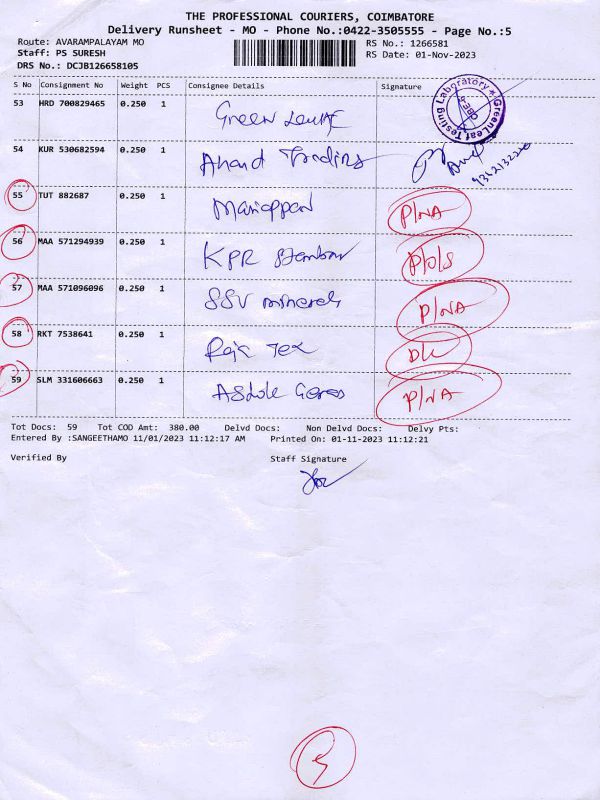 THE PROFESSIONAL COURIERS, COIMBATORE
Delivery Runsheet - MO - Phone No.:0422-3505555 - Page No.:5
Route: AVARAMPALAYAM MO RS No.: 1266581
Staff: PS SURESH RS Date: 01-Nov-2023
DRS No.: DCJB126658105
S No Consignment No Weight PCS Consignee Details Signature
53 HRD 700829465 0.250 1 Green
GreenLeaf Testing Laboratory
54 KUR 530682594 0.250 1 Anand Trading
55 TUT 882687 0.250 1 Mariappan P/NA
56 MAA 571294939 0.250 1 KPR P/o/s
57 MAA 571096096 0.250 1 SSV minerals P/NA
58 RKT 7538641 0.250 1 Raja Tex DL
59 SLM 331606663 0.250 1 P/NA
Tot Docs: 59 Tot COD Amt: 380.00 Delvd Docs: Non Delvd Docs: Delvy Pts:
Entered By :SANGEETHAMO 11/01/2023 11:12:17 AM Printed On: 01-11-2023 11:12:21
Verified By Staff Signature
5